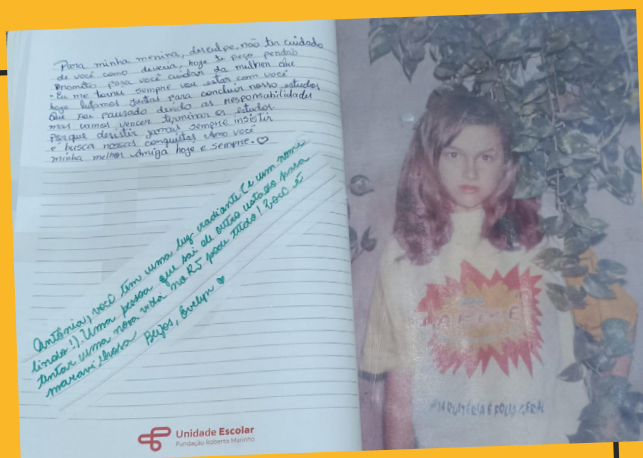 Para minha menina, desculpe não ter cuidado
de você como deveria, hoje te peço perdão
Prometo para você cuidar da mulher que
eu me tornei sempre vou estar com você
hoje lutamos juntas para concluir nosso estudos
que foi pausado devido as responsabilidades
mas vamos vencer terminar os estudos
Porque desistir jamais sempre insistir
e busca nossas conquistas Amo você
minha melhor Amiga hoje e sempre. ♡
Antônia, você tem uma luz radiante (e um nome
lindo!). Uma pessoa que sai de outro estado para
tentar uma nova vida no RJ pode tudo! Você é
maravilhosa Beijos, Evelyn ♡
Unidade Escolar
Fundação Roberto Marinho